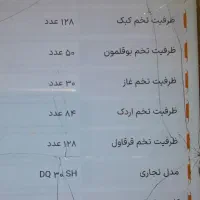 ظرفیت تخم کبک ۱۲۸ عدد
ظرفیت تخم بوقلمون ۵۰ عدد
ظرفیت تخم غاز ۳۰ عدد
ظرفیت تخم اردک ۸۴ عدد
ظرفیت تخم قرقاول ۱۲۸ عدد
مدل تجاری DQ ۳۰ SH